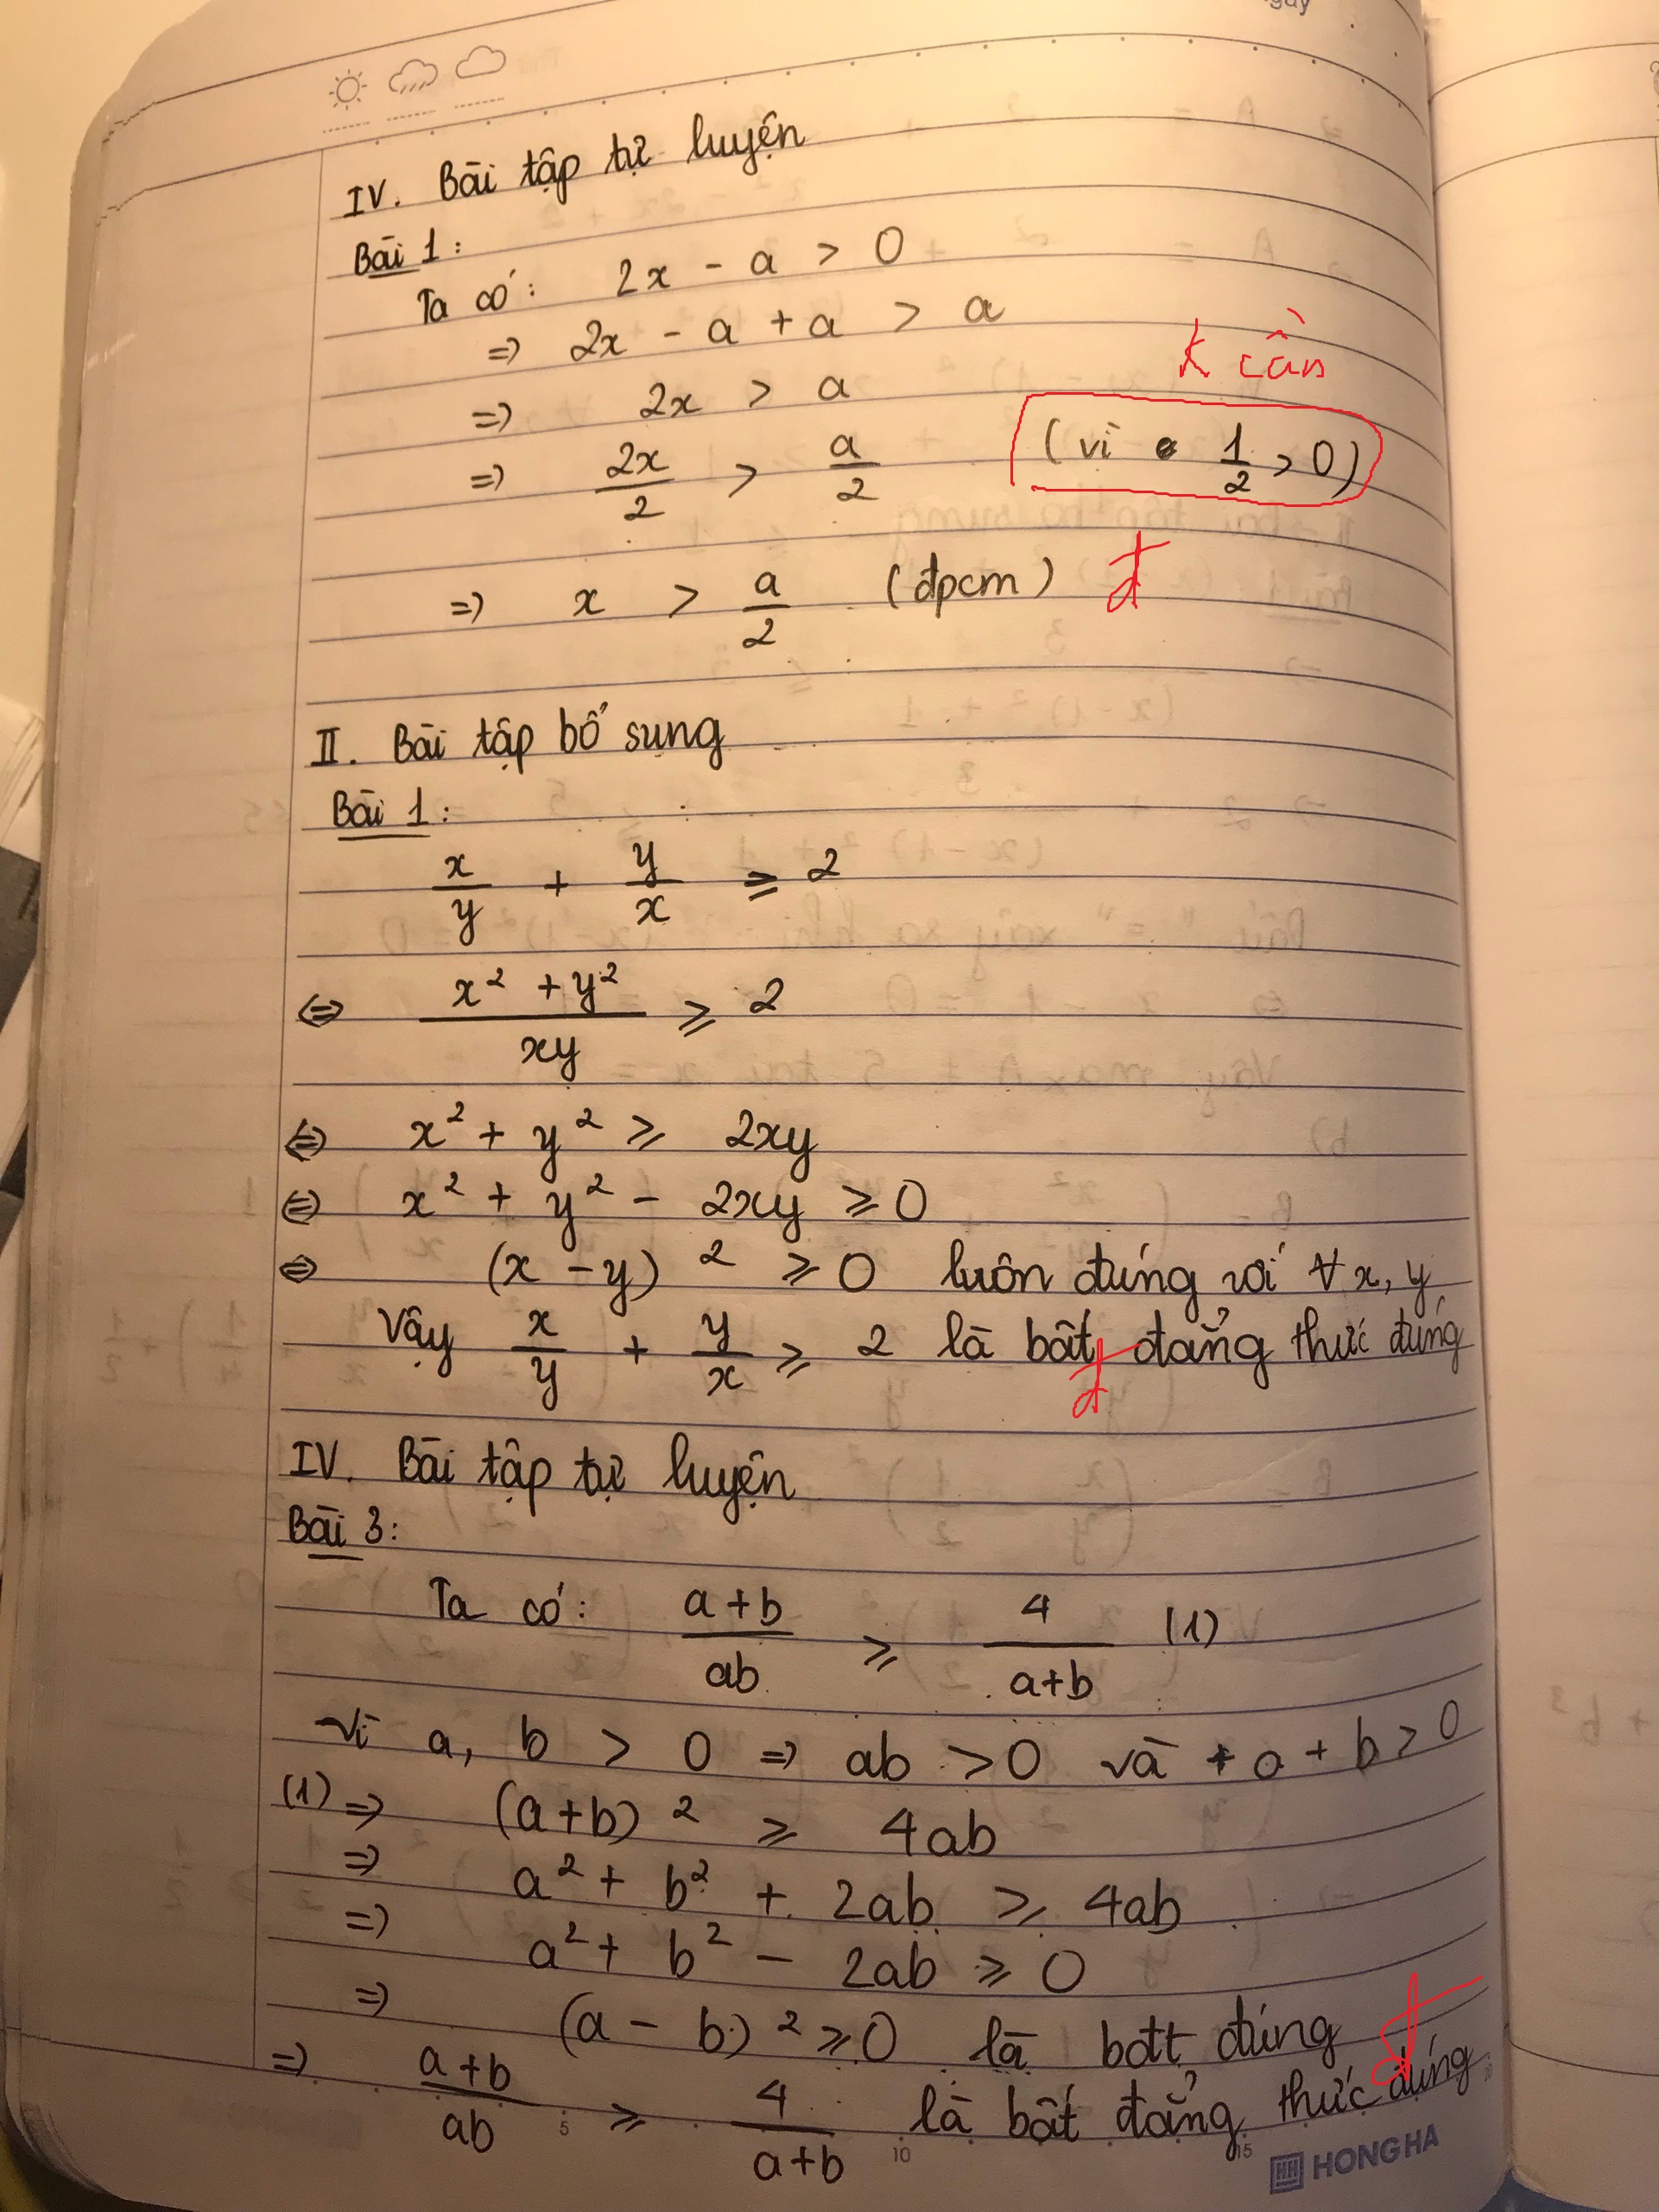 IV. Bài tập tự luyện
Bài 1:
Ta có: 2x - a > 0
=> 2x - a + a > a
K cần
=> 2x > a
=> 2x/2 > a/2 (vì 1/2 > 0)
=> x > a/2 (đpcm) đ
II. Bài tập bổ sung
Bài 1:
x/y + y/x ≥ 2
⇔ (x² + y²)/xy ≥ 2
⇔ x² + y² ≥ 2xy
⇔ x² + y² - 2xy ≥ 0
⇔ (x - y)² ≥ 0 luôn đúng với ∀ x, y
Vậy x/y + y/x ≥ 2 là bất đẳng thức đúng
đ
IV. Bài tập tự luyện
Bài 3:
Ta có: (a+b)/ab ≥ 4/(a+b) (1)
Vì a, b > 0 => ab > 0 và a + b > 0
(1) => (a+b)² ≥ 4ab
=> a² + b² + 2ab ≥ 4ab
=> a² + b² - 2ab ≥ 0
=> (a - b)² ≥ 0 là bđt đúng đ
=> (a+b)/ab ≥ 4/(a+b) là bất đẳng thức đúng
5 10 15
HONG HA